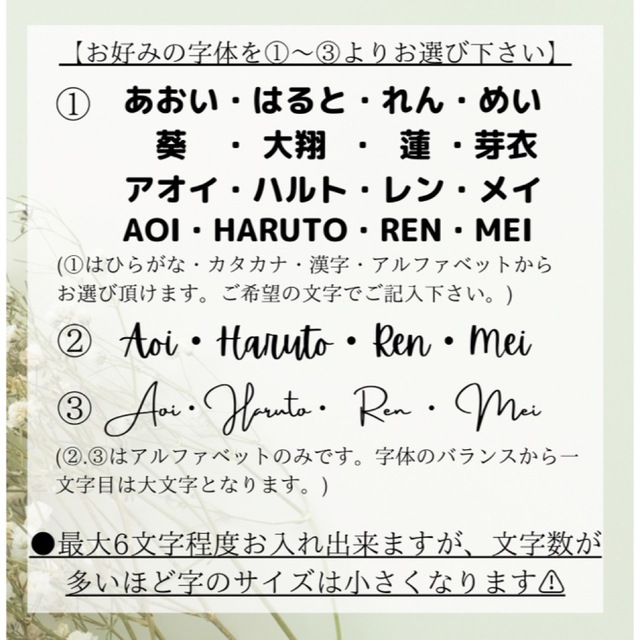 【お好みの字体を①～③よりお選び下さい】
① あおい・はると・れん・めい
葵 ・ 大翔 ・ 蓮 ・芽衣
アオイ・ハルト・レン・メイ
AOI・HARUTO・REN・MEI
(①はひらがな・カタカナ・漢字・アルファベットから
お選び頂けます。ご希望の文字でご記入下さい。)
② Aoi・Haruto・Ren・Mei
③ Aoi・Haruto・ Ren ・ Mei
(②.③はアルファベットのみです。字体のバランスから一
文字目は大文字となります。)
●最大6文字程度お入れ出来ますが、文字数が
多いほど字のサイズは小さくなります⚠